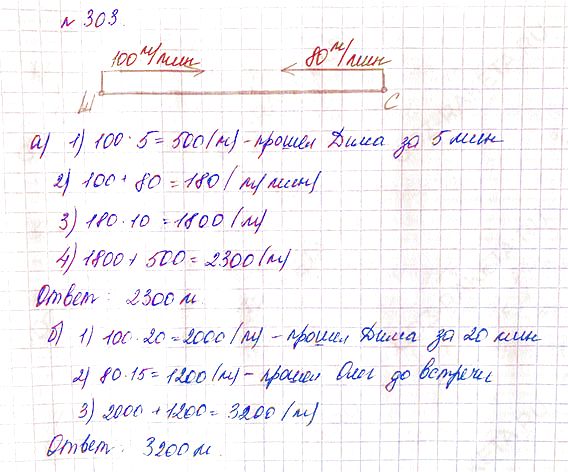 № 303.
100 м/мин 80 м/мин
Ш С
а) 1) 100 · 5 = 500 (м) - прошел Дима за 5 мин
2) 100 + 80 = 180 (м/мин)
3) 180 · 10 = 1800 (м)
4) 1800 + 500 = 2300 (м)
Ответ: 2300 м.
б) 1) 100 · 20 = 2000 (м) - прошел Дима за 20 мин
2) 80 · 15 = 1200 (м) - прошел Олег до встречи
3) 2000 + 1200 = 3200 (м)
Ответ: 3200 м.